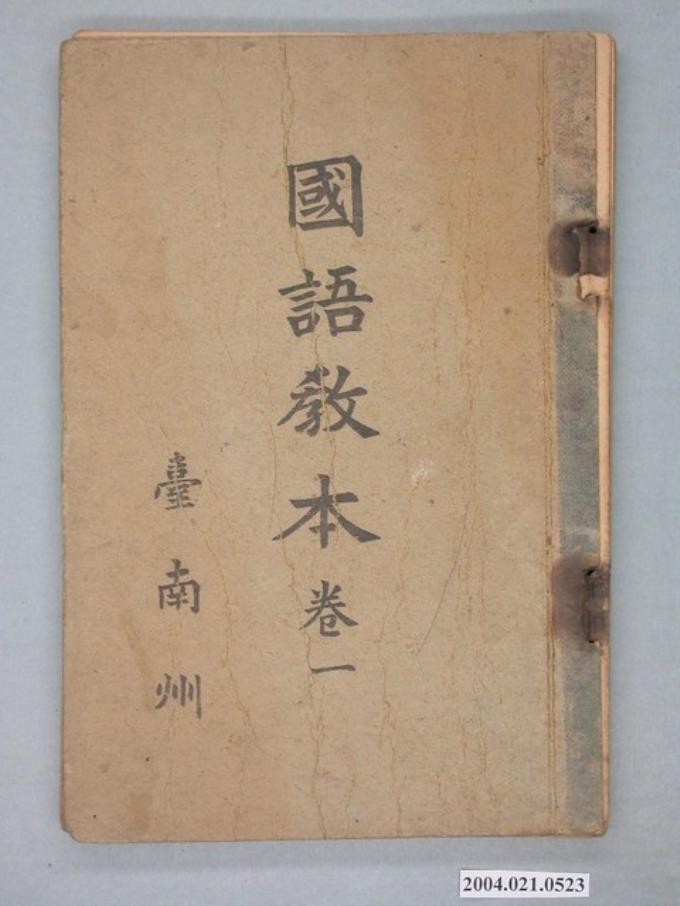 國語教本 卷一
臺南州
2004.021.0523